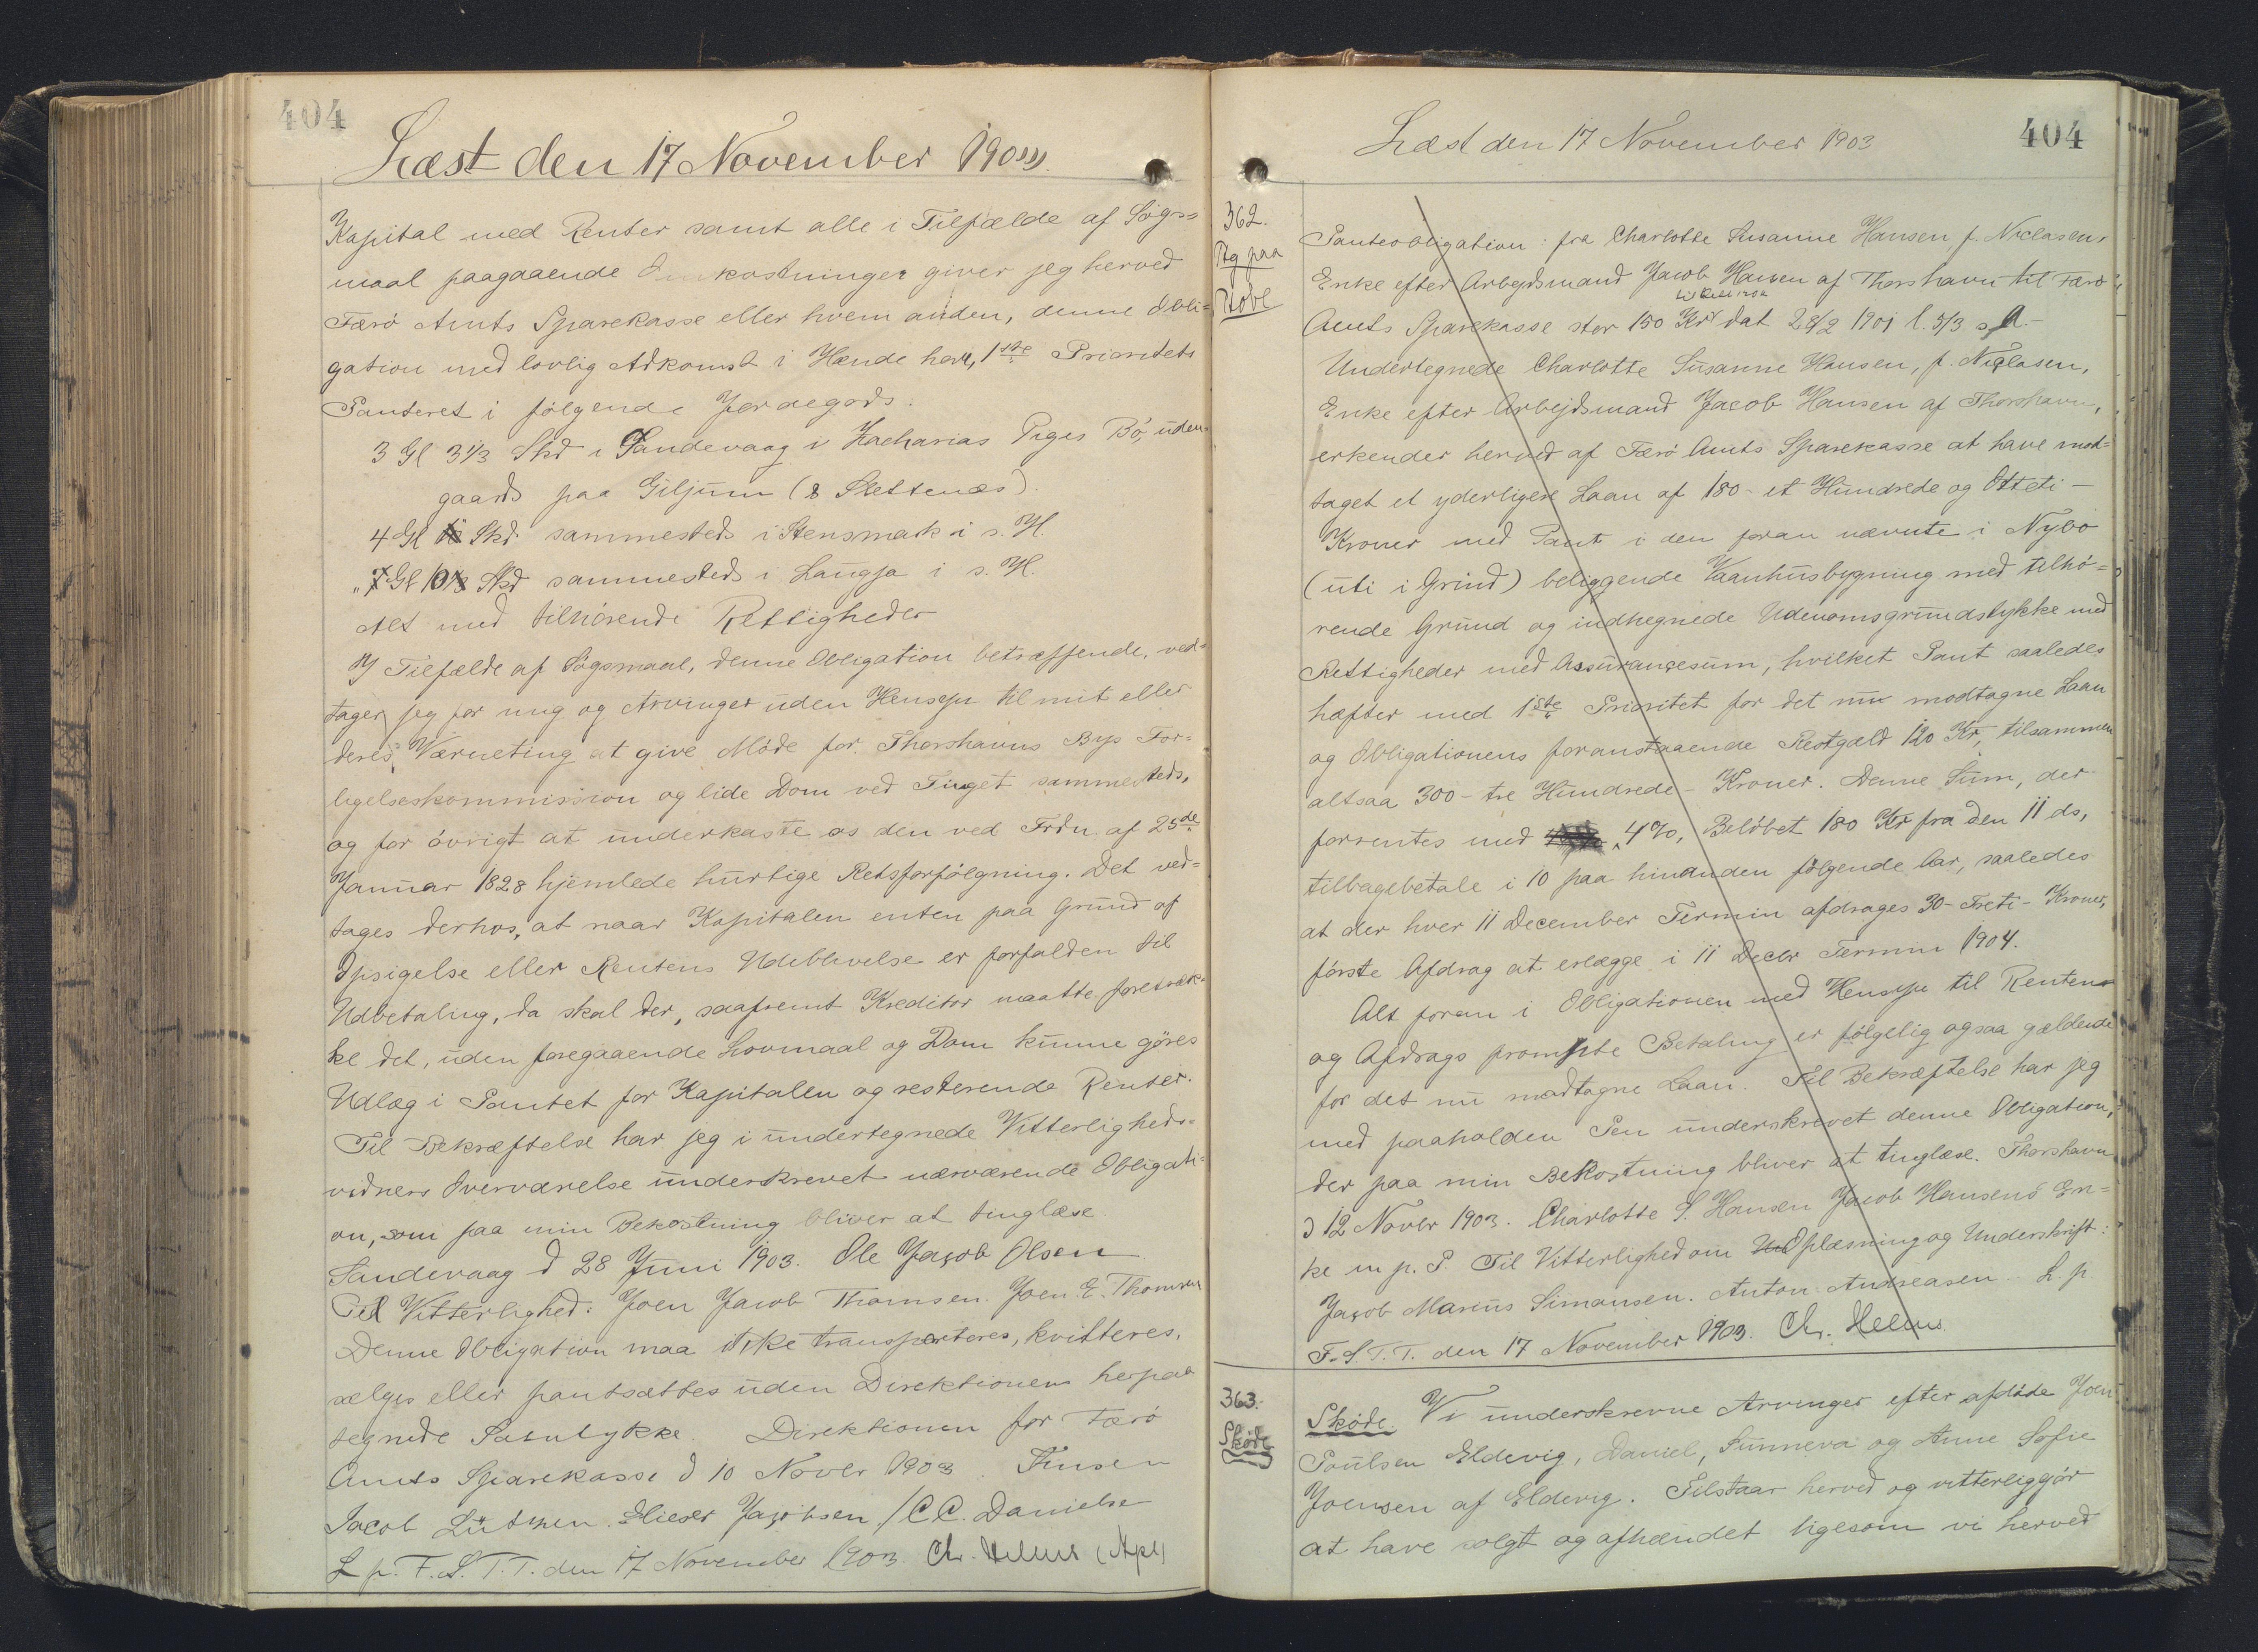 404
Læst den 17 November 1903.
Kapital med Renter samt alle i Tilfælde af Søgs=
maal paagaaende Omkostninger giver jeg herved
Færö Amts Sparekasse eller hvem anden, denne Obli=
gation med lovlig Adkomst i Hænde har, 1ste Prioritets
Panteret i følgende Jordegods.
3 Gl 3 1/3 Skd i Sandevaag i Zacharias Piges Bö, uden
gaards paa Giljum (& Slettenæs).
4 Gl Skd sammesteds i Stensmark i s. H.
Gl 10 Skd sammesteds i Laugja i s. H.
Alt med tilhörende Rettigheder
I Tilfælde af Søgsmaal, denne Obligation betræffende, ved=
tager jeg for mig og Arvinger uden Hensyn til mit eller
deres Værneting at give Möde for Thorshavns Bys For=
ligelseskommission og lide Dom ved Tinget sammesteds,
og for övrigt at underkaste os den ved Frdn. af 25de
Januar 1828 hjemlede hurtige Retsforfølgning. Det ved=
tages derhos, at naar Kapitalen enten paa Grund af
Opsigelse eller Rentens Udeblivelse er forfalden til
Udbetaling, da skal der, saafremt Kreditor maatte foretræk=
ke det, uden foregaaende Lovmaal og Dom kunne göres
Udlæg i Pantet for Kapitalen og resterende Renter.
Til Bekræftelse har jeg i undertegnede Vitterligheds=
vidners Overværelse underskrevet nærværende Obligati=
on, som paa min Bekostning bliver at tinglæse.
Sandevaag d 28 Juni 1903. Ole Jacob Olsen
Til Vitterlighed: Joen Jacob Thomsen. Joen E. Thomsen
Denne Obligation maa ikke transporteres, kvitteres,
sælges eller pantsættes uden Direktionens herpaa
tegnede Samtykke. Direktionen for Færö
Amts Sparekasse d 10 Novbr 1903. Finsen
Jacob Lützen. Elieser Jacobsen / C.C. Danielsen
L. p. F. S. T. T. den 17 November 1903. Chr. Helms
404
Læst den 17 November 1903
362.
Ptg paa
Pobl
Panteobligation: fra Charlotte Susanne Hansen f. Niclasen,
Enke efter Arbejdsmand Jacob Hansen af Thorshavn til Færö
Amts Sparekasse stor 150 Kr dat 28/2 1901 l. 5/3 s. A.
Undertegnede Charlotte Susanne Hansen, f. Niclasen,
Enke efter Arbejdsmand Jacob Hansen af Thorshavn,
erkender herved af Færö Amts Sparekasse at have mod=
taget et yderligere Laan af 180 - et Hundrede og Otteti -
Kroner med Pant i den foran nævnte i Nybö
(uti i Grind) beliggende Vaanhusbygning med tilhö=
rende Grund og indhegnede Udenomsgrundstykke med
Rettigheder med Assurancesum, hvilket Pant saaledes
hæfter med 1ste Prioritet for det nu modtagne Laan
og Obligationens foranstaaende Restgæld 120 Kr, tilsammen
altsaa 300 - tre Hundrede - Kroner. Denne Sum, der
forrentes med 4%, Belöbet 180 Kr fra den 11 ds,
tilbagebetale i 10 paa hinanden følgende Aar, saaledes
at der hver 11 December Termin afdrages 30 - Treti - Kroner,
første Afdrag at erlægge i 11 Decbr Termin 1904.
Alt foran i Obligationen med Hensyn til Rentens
og Afdrags prompte Betaling er følgelig ogsaa gældende
for det nu modtagne Laan. Til Bekræftelse har jeg
med paaholden Pen underskrevet denne Obligation,
der paa min Bekostning bliver at tinglæse. Thorshavn
d 12 Novbr 1903. Charlotte S. Hansen Jacob Hansens En=
ke m. p. P. Til Vitterlighed om Oplæsning og Underskrift:
Jacob Marius Simonsen. Anton Andreasen. L. p.
F. S. T. T. den 17 November 1903. Chr. Helms
363.
Sköde
Sköde. Vi underskrevne Arvinger efter afdöde Joen
Poulsen Eldevig, Daniel, Sunneva og Anne Sofie
Joensen af Eldevig. Tilstaar herved og vitterliggjör
at have solgt og afhændet ligesom vi herved